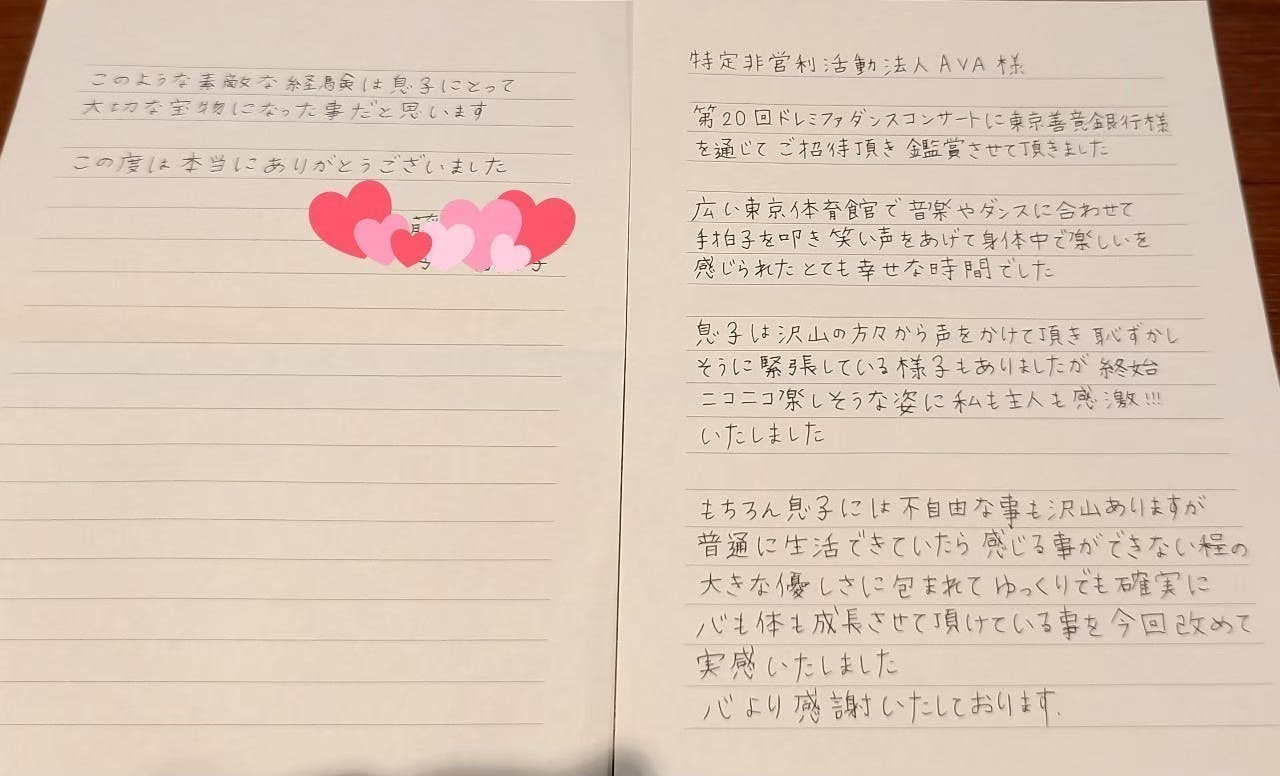 特定非営利活動法人AVA様
第20回ドレミファダンスコンサートに東京善意銀行様
を通じて ご招待頂き 鑑賞させて頂きました
広い東京体育館で 音楽やダンスに合わせて
手拍子を叩き 笑い声をあげて身体中で楽しいを
感じられた とても幸せな時間でした
息子は沢山の方々から声をかけて頂き 恥ずかし
そうに緊張している様子もありましたが 終始
ニコニコ楽しそうな姿に 私も主人も感激!!!
いたしました
もちろん息子には不自由な事も沢山ありますが
普通に生活できていたら 感じる事ができない程の
大きな優しさに包まれて ゆっくりでも確実に
心も体も成長させて頂けている事を今回改めて
実感いたしました
心より感謝いたしております.
このような素敵な経験は息子にとって
大切な宝物になった事だと思います
この度は本当にありがとうございました